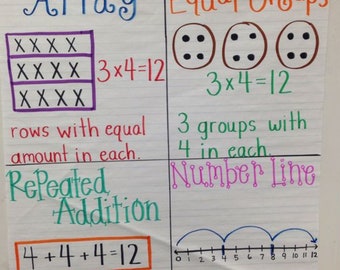 Array
X X X X
X X X X
X X X X
3x4=12
rows with equal
amount in each.
Equal Groups
3x4=12
3 groups with
4 in each.
Repeated
Addition
4+4+4=12
Number Line
0 1 2 3 4 5 6 7 8 9 10 11 12